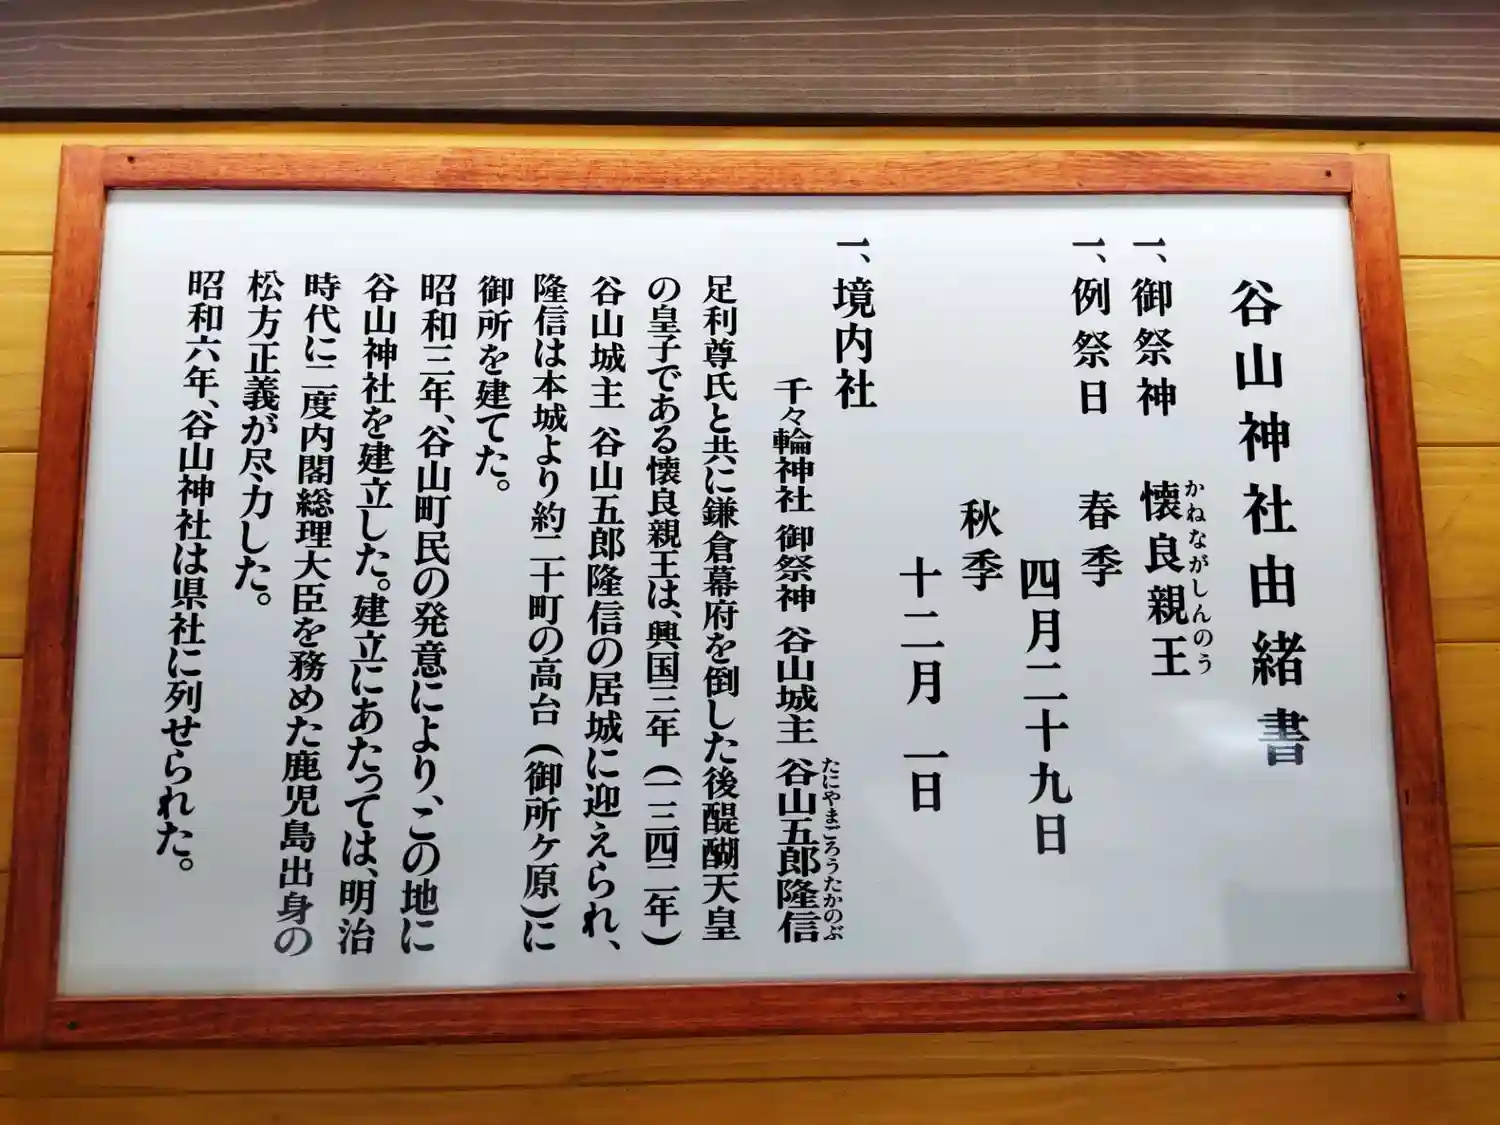 谷山神社由緒書
一、御祭神　懐良親王
かねながしんのう
一、例祭日　春季
四月二十九日
秋季
十二月一日
一、境内社
千々輪神社 御祭神 谷山城主 谷山五郎隆信
たにやまごろうたかのぶ
足利尊氏と共に鎌倉幕府を倒した後醍醐天皇
の皇子である懐良親王は、興国三年（一三四二年）
谷山城主 谷山五郎隆信の居城に迎えられ、
隆信は本城より約二十町の高台（御所ケ原）に
御所を建てた。
昭和三年、谷山町民の発意により、この地に
谷山神社を建立した。建立にあたっては、明治
時代に二度内閣総理大臣を務めた鹿児島出身の
松方正義が尽力した。
昭和六年、谷山神社は県社に列せられた。